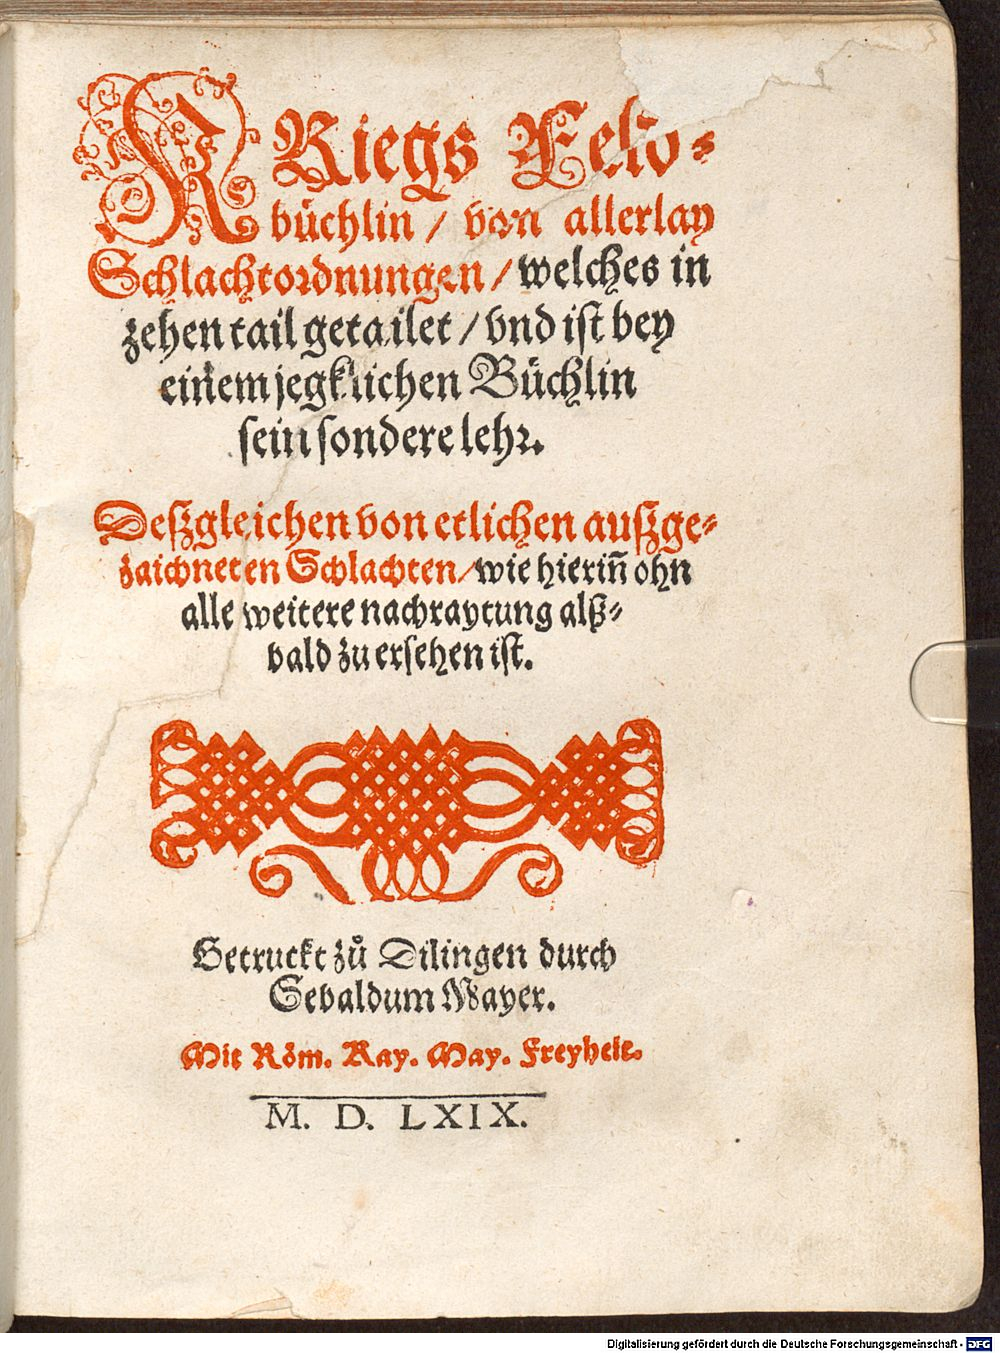 KRiegs Feld-
büchlin / von allerlay
Schlachtordnungen / welches in
zehen tail getailet / vnd ist bey
einem jegklichen Büchlin
sein sondere lehr.
Deßgleichen von etlichen außge-
zaichneten Schlachten / wie hieriñ ohn
alle weitere nachraytung alß-
bald zu ersehen ist.
Getruckt zů Dilingen durch
Sebaldum Mayer.
Mit Röm. Kay. May. Freyheit.
M. D. LXIX.
Digitalisierung gefördert durch die Deutsche Forschungsgemeinschaft - DFG